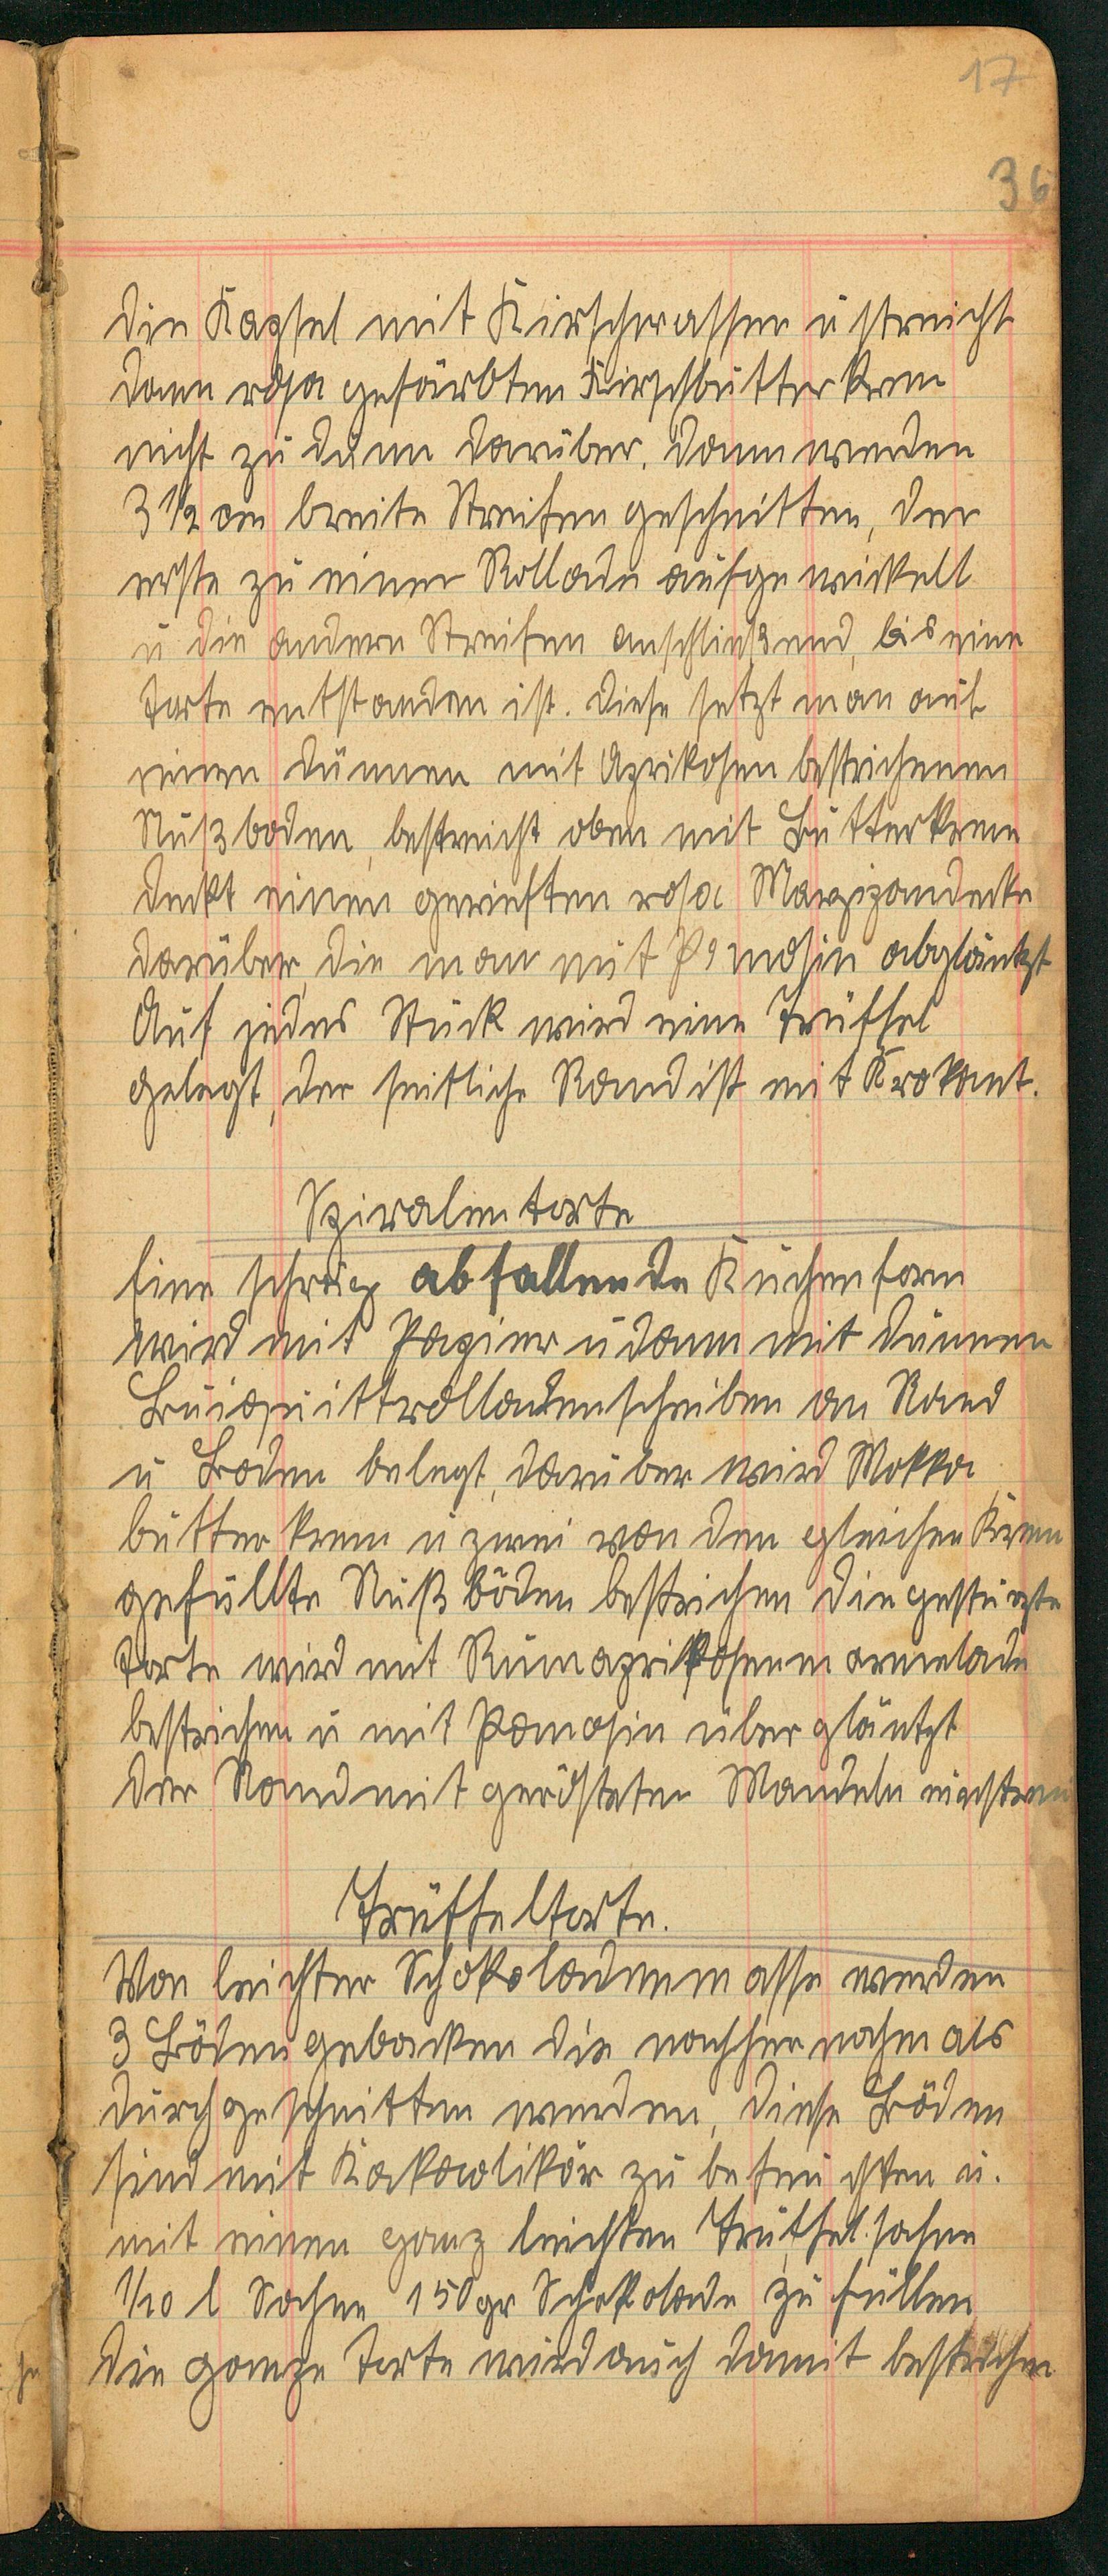 17
36
die Kapsel mit Kirschwasser u streicht
dann rosa gefärbten Kirschbutterkrem
nicht zu dünn darüber. dann werden
3 1/2 cm breite Streifen geschnitten, der
erste zu einer Rollade aufgewickelt
u die andern Streifen anschließend, bis eine
Torte entstanden ist. diese setzt man auf
einen dünnen mit Aprikosen bestrichenen
Nußboden, bestreicht oben mit Butterkrem
deckt einen gerieften rosa Marzipandecke
darüber, die man mit Pomosin abgläntzt
Auf jedes Stück wird eine Trüffel
gelegt, der seitliche Rand ist mit Krokant.
Spiralentorte
Eine schräg abfallende Kuchenform
wird mit Papier u dann mit dünnen
Buisquittrolladenscheiben an Rand
u Boden belegt, darüber wird Mokka
butterkrem u zwei von den gleichen Krem
gefüllte Nußböden bestrichen die gestürzte
Torte wird mit Rumaprikosenmarmelade
bestrichen u mit Pomosin übergläntzt
der Rand mit gerösteten Mandeln
Trüffeltorte.
Von leichter Schokoladenmasse werden
3 Böden gebacken die nachher nochmals
durchgeschnitten werden, diese Böden
sind mit Kakaolikör zu befeuchten u.
mit einen ganz leichten Trüffelsahne
1/10 l Sahne 150 gr Schokolade zu füllen
die ganze Torte wird auch damit bestrichen